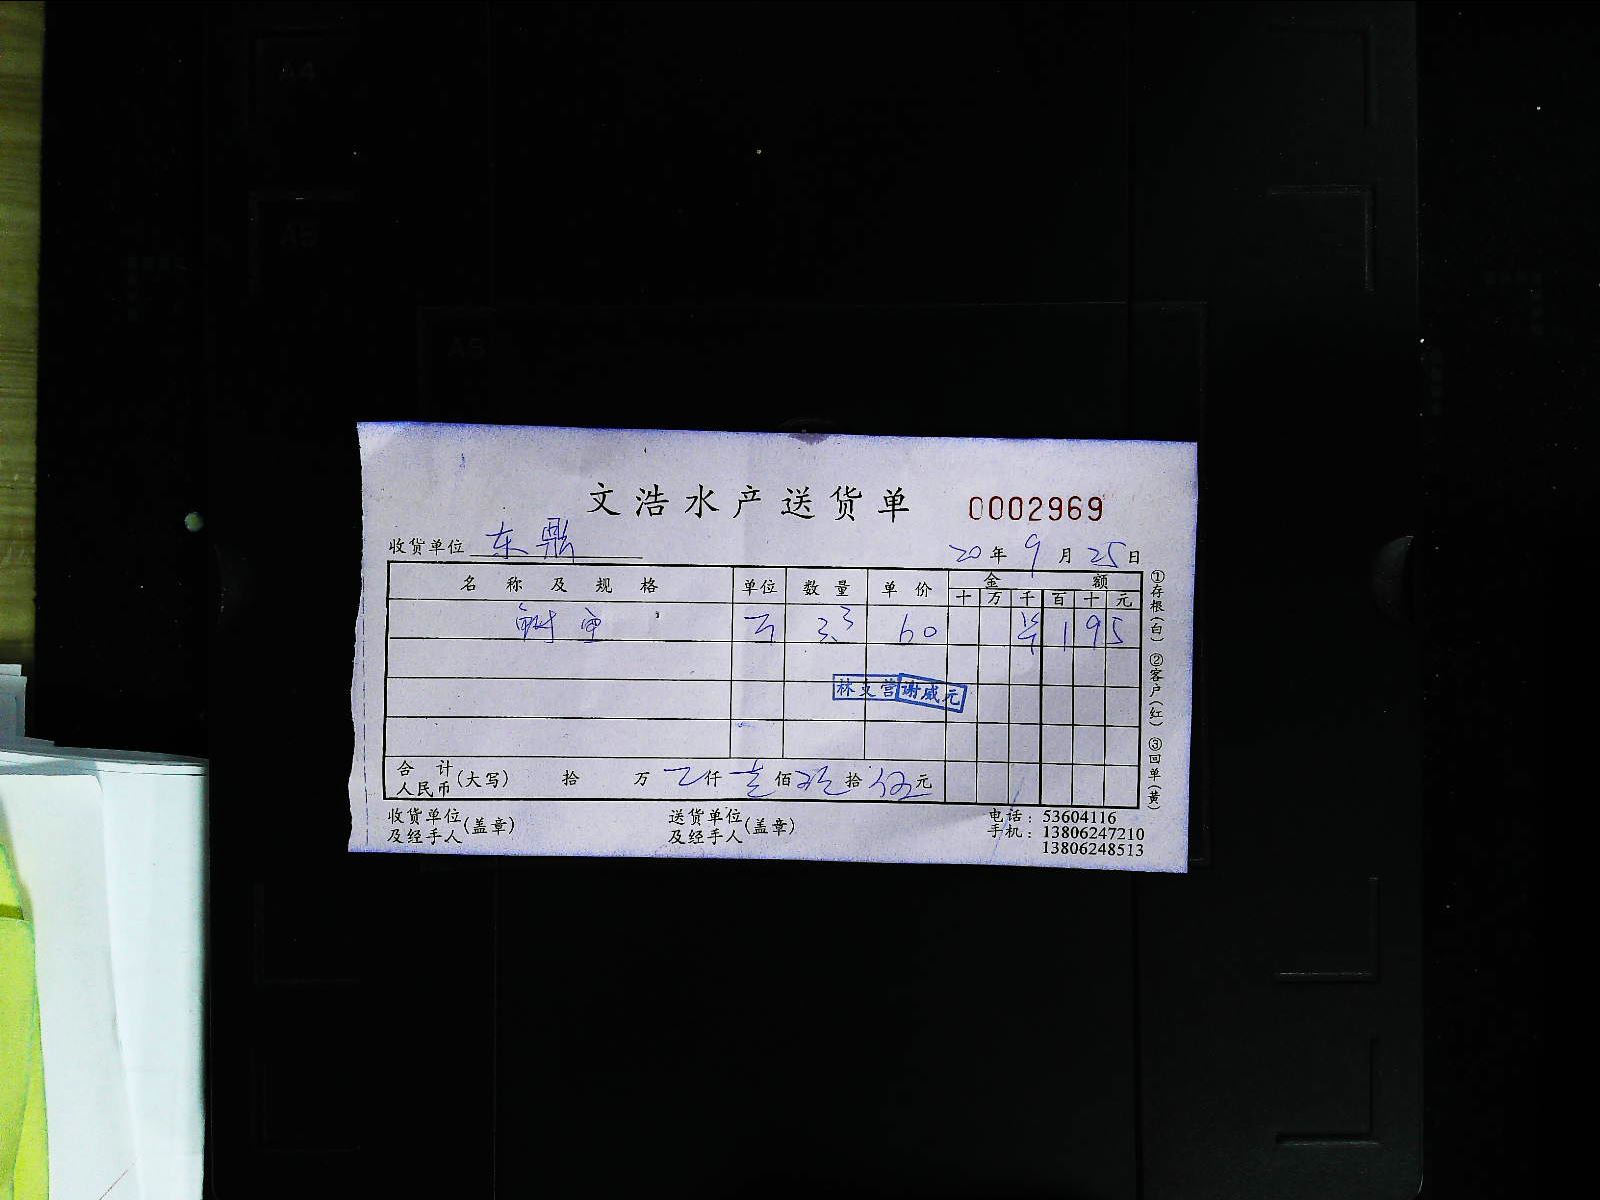 A4
A5
A5
文浩水产送货单 0002969
收货单位 东鼎 20年9月25日
名称及规格 单位 数量 单价 金额
十 万 千 百 十 元
斤 3.3 60 ¥ 1 9 5
林文营 谢威元
合计人民币(大写) 拾 万 仟 壹 佰 玖 拾 伍 元
收货单位及经手人(盖章) 送货单位及经手人(盖章) 电话:53604116
手机:13806247210
13806248513
①存根(白) ②客户(红) ③回单(黄)